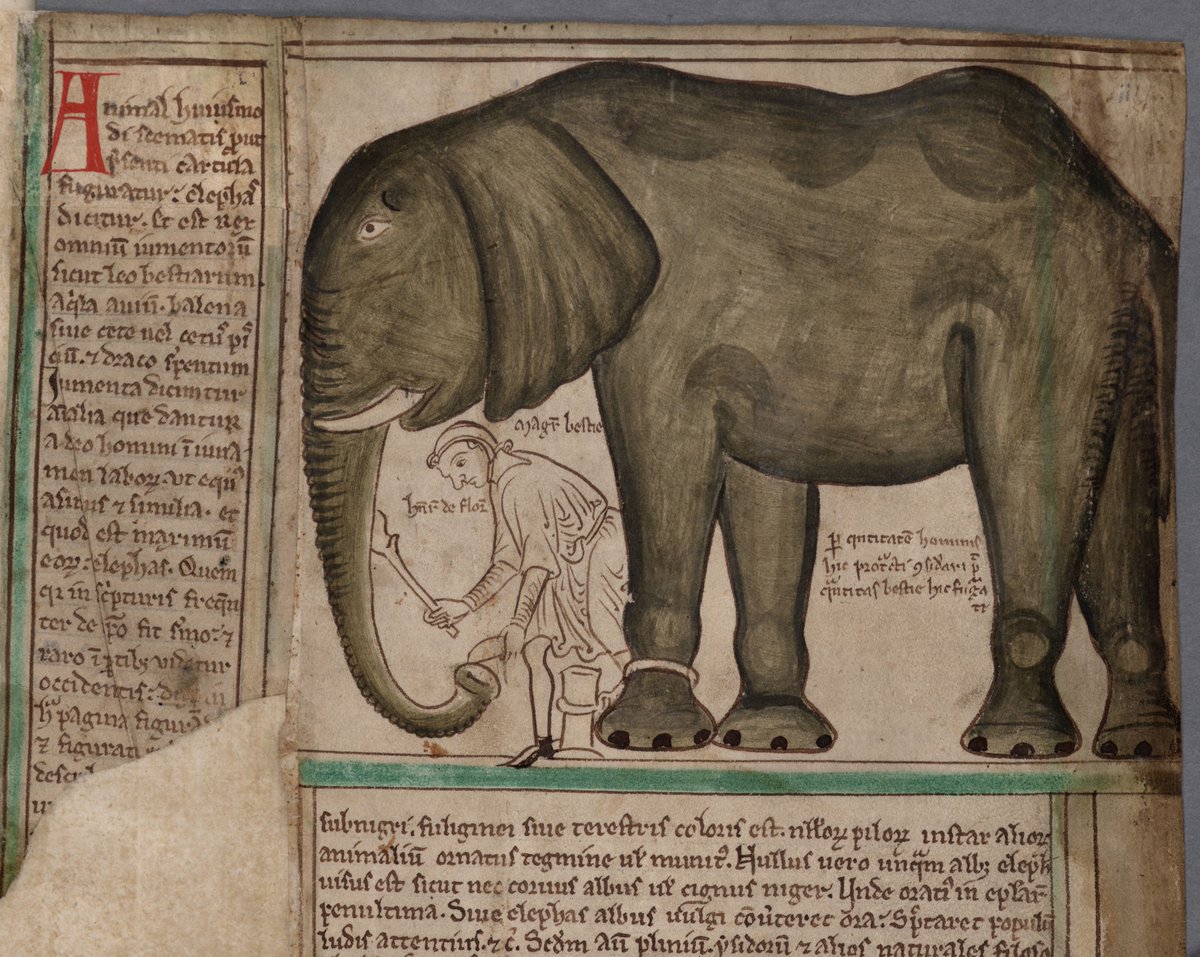 Animal huiusmo
di scematis put
psenti cartula
figuratur. elephas
dicitur. Et est Rex
omniū iumentorū
sicut leo bestiarum
aq̄la auiū. balena
siue cete uel cetus pis
ciū. ⁊ draco serpentum
Iumenta dicuntur
aīalia que dantur
a deo homini ī iuua
men labor. ut equs
asinus ⁊ similia. et
quod est maximū
eor. elephas. Quem
qr in scpturis freq̄n
ter de eo fit smo. ⁊
raro ī ptibȝ uidetur
occidentis.
hac pagina figurā
⁊ figurati
Magr bestie
henr de flor
Per quntitatē hominis
hic protracti considerari potest
quntitas bestie hic figura
te
subnigri. fuliginei siue terrestris coloris est. nllor pilor instar alior
animaliū ornatus tegmine ul munitus. Nullus uero unqam albus eleph
uisus est sicut nec coruus albus ul cignus niger. Unde orati in eplar
penultima. Siue elephas albus uulgi cōuteret ora. Spectaret populū
ludis attentius. ⁊c. Scdm aū pliniū. ysidorū ⁊ alios naturales filoso